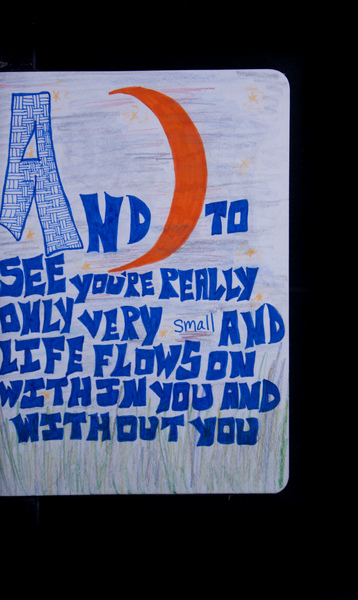 AND TO
SEE YOU'RE REALLY
ONLY VERY small AND
LIFE FLOWS ON
WITHIN YOU AND
WITHOUT YOU